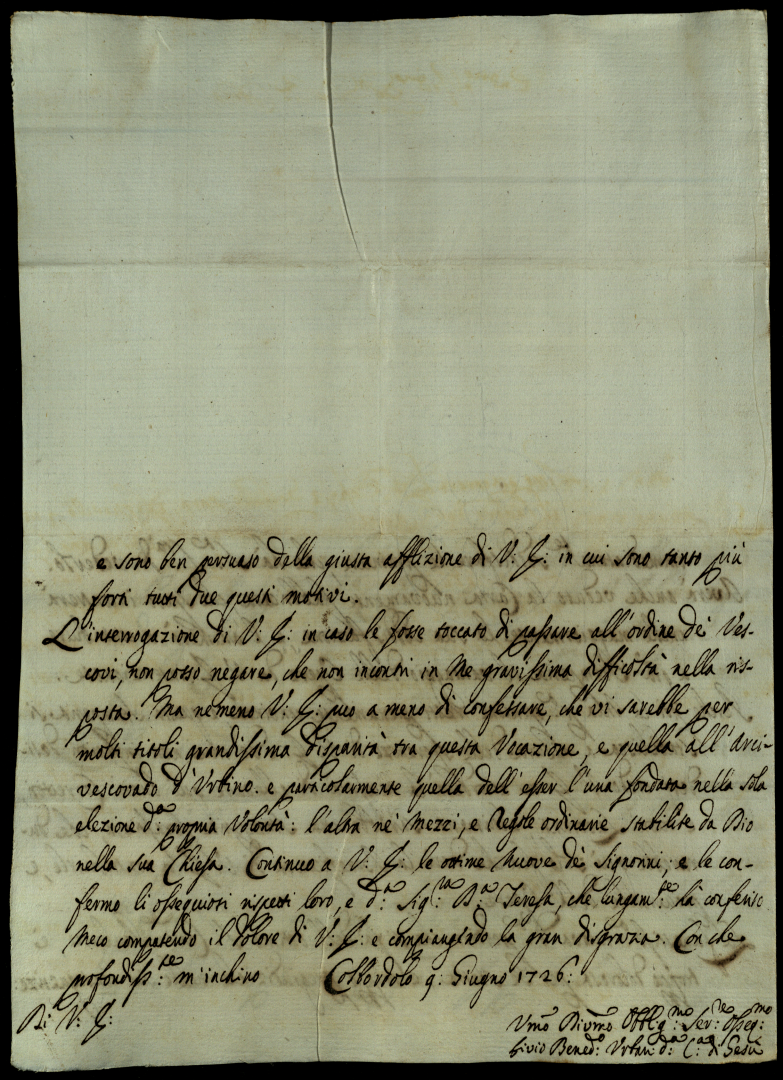 e sono ben persuaso della giusta afflizione di V: J: in cui sono tanto più
forti tutti due questi motivi.
L'interrogazione di V: J: in caso le fosse toccato di passare all'ordine de' Ves-
covi, non posso negare, che non incontri in me gravissima difficoltà nella ris-
posta. Ma nemeno V: J: puo a meno di confessare, che vi sarebbe per
molti titoli grandissima disparità tra questa Vocazione, e quella all'Arci-
vescovado d'Urbino. e particolarmente quella dell'esser l'una fondata nella sola
elezione d:a propria Volontà: l'altra ne' Mezzi, e Regole ordinarie stabilite da Dio
nella sua Chiesa. Continuo a V: J: le ottime Nuove de' Signorini; e le con-
fermo li ossequiosi rispetti loro, e d:a Sig:ra B:a Teresa, che lungam:te hà conferito
meco compatendo il dolore di V: J: e compiangendo la gran disgrazia. Con che
profondiss:te m'inchino Colbordolo 9: Giugno 1726:
Di V: J:
Umo Divmo Obblig:mo Ser:re Osseq:mo
Livio Bened:o Urbani d:a C:a di Gesù